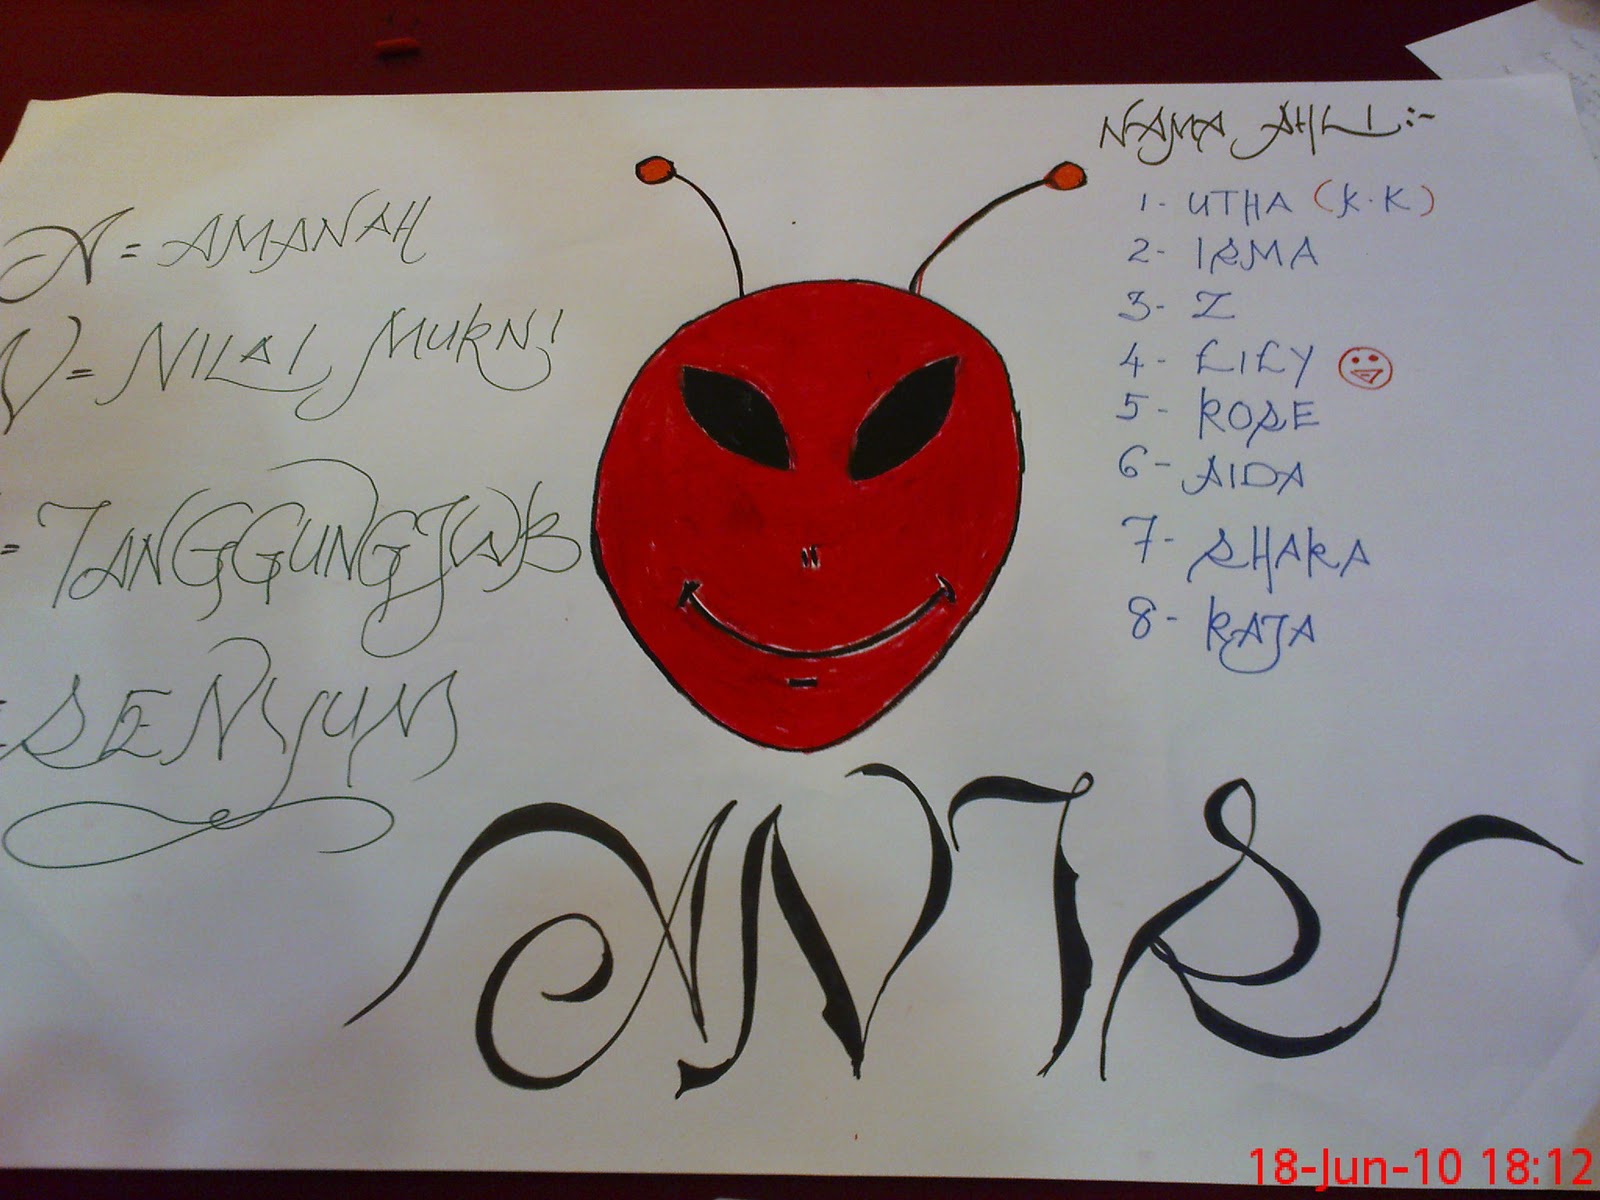 A = AMANAH
N = NILAI MURNI
= TANGGUNGJWB
= SENYUM
NAMA AHLI :-
1- UTHA (K.K)
2- IRMA
3- Z
4- LILY
5- ROSE
6- AIDA
7- SHARA
8- RAJA
ANTS
18-Jun-10 18:12